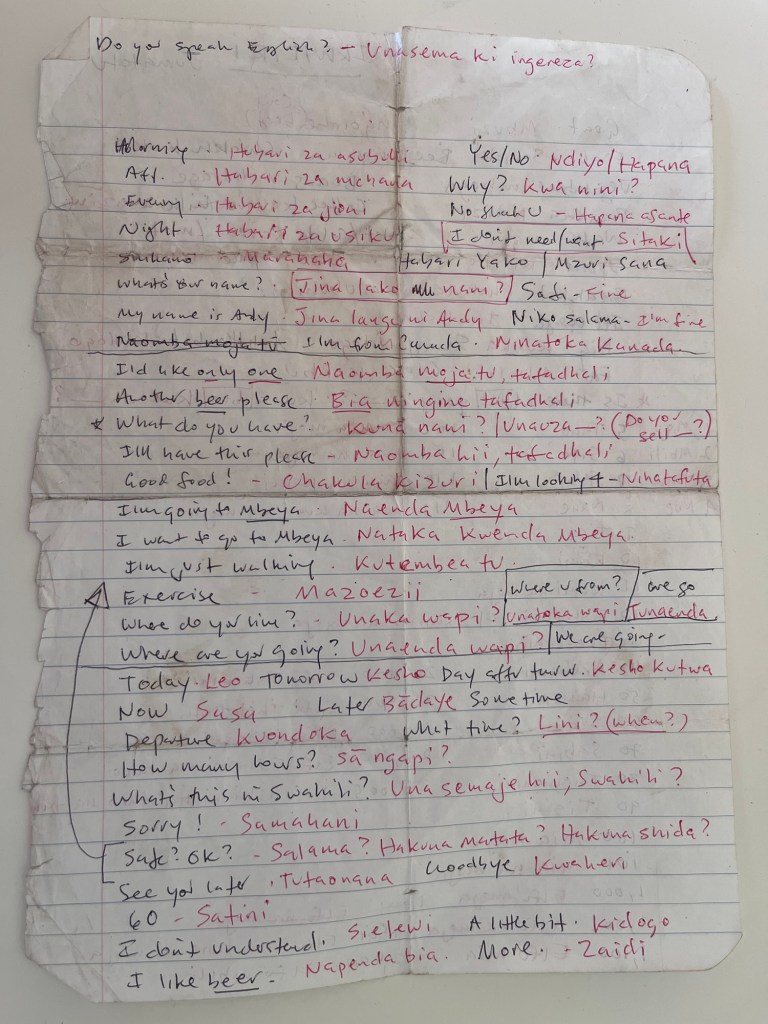 Do you speak English? - Unasema ki ingereza?
Morning Habari za asubuhi Yes/No. Ndiyo/Hapana
Aft. Habari za mchana Why? Kwa nini?
Evening. Habari za jioni No thank U - Hapana asante
Night Habari za usiku I don't need/want Sitaki
= Marahaha Habari Yako / Mzuri Sana
What's your name? Jina lako nani? Safi - Fine
My name is Andy. Jina langu ni Andy Niko salama - I'm fine
Naomba moja tu I'm from Canada. Ninatoka Kanada
I'd like only one Naomba moja tu, tafadhali
Another beer please Bia ningine tafadhali
* What do you have? Kuna nani? / Unauza __? (Do you sell __?)
I'll have this please - Naomba hii, tafadhali
Good food! - Chakula Kizuri / I'm looking 4 - Ninatafuta
I'm going to Mbeya. Naenda Mbeya
I want to go to Mbeya. Nataka Kwenda Mbeya.
I'm just walking. Kutembea tu.
Exercise - Mazoezii Where U from? are go
Where do you live? - Unaka wapi? Unatoka wapi Tunaenda
Where are you going? Unaenda wapi? We are going -
Today. Leo Tomorrow Kesho Day aftr tmrw. Kesho Kutwa
Now Sasa Later Bādaye Sometime
Departure Kuondoka What time? Lini? (when?)
How many hours? Sā ngāpi?
What's this in Swahili? Una semaje hii, Swahili?
Sorry! - Samahani
Safe? OK? - Salama? Hakuna matata? Hakuna shida?
See you later. Tutaonana Goodbye Kwaheri
60 - Satini
I don't understand. Sielewi A little bit. Kidogo
I like beer. Napenda bia. More. - Zaidi